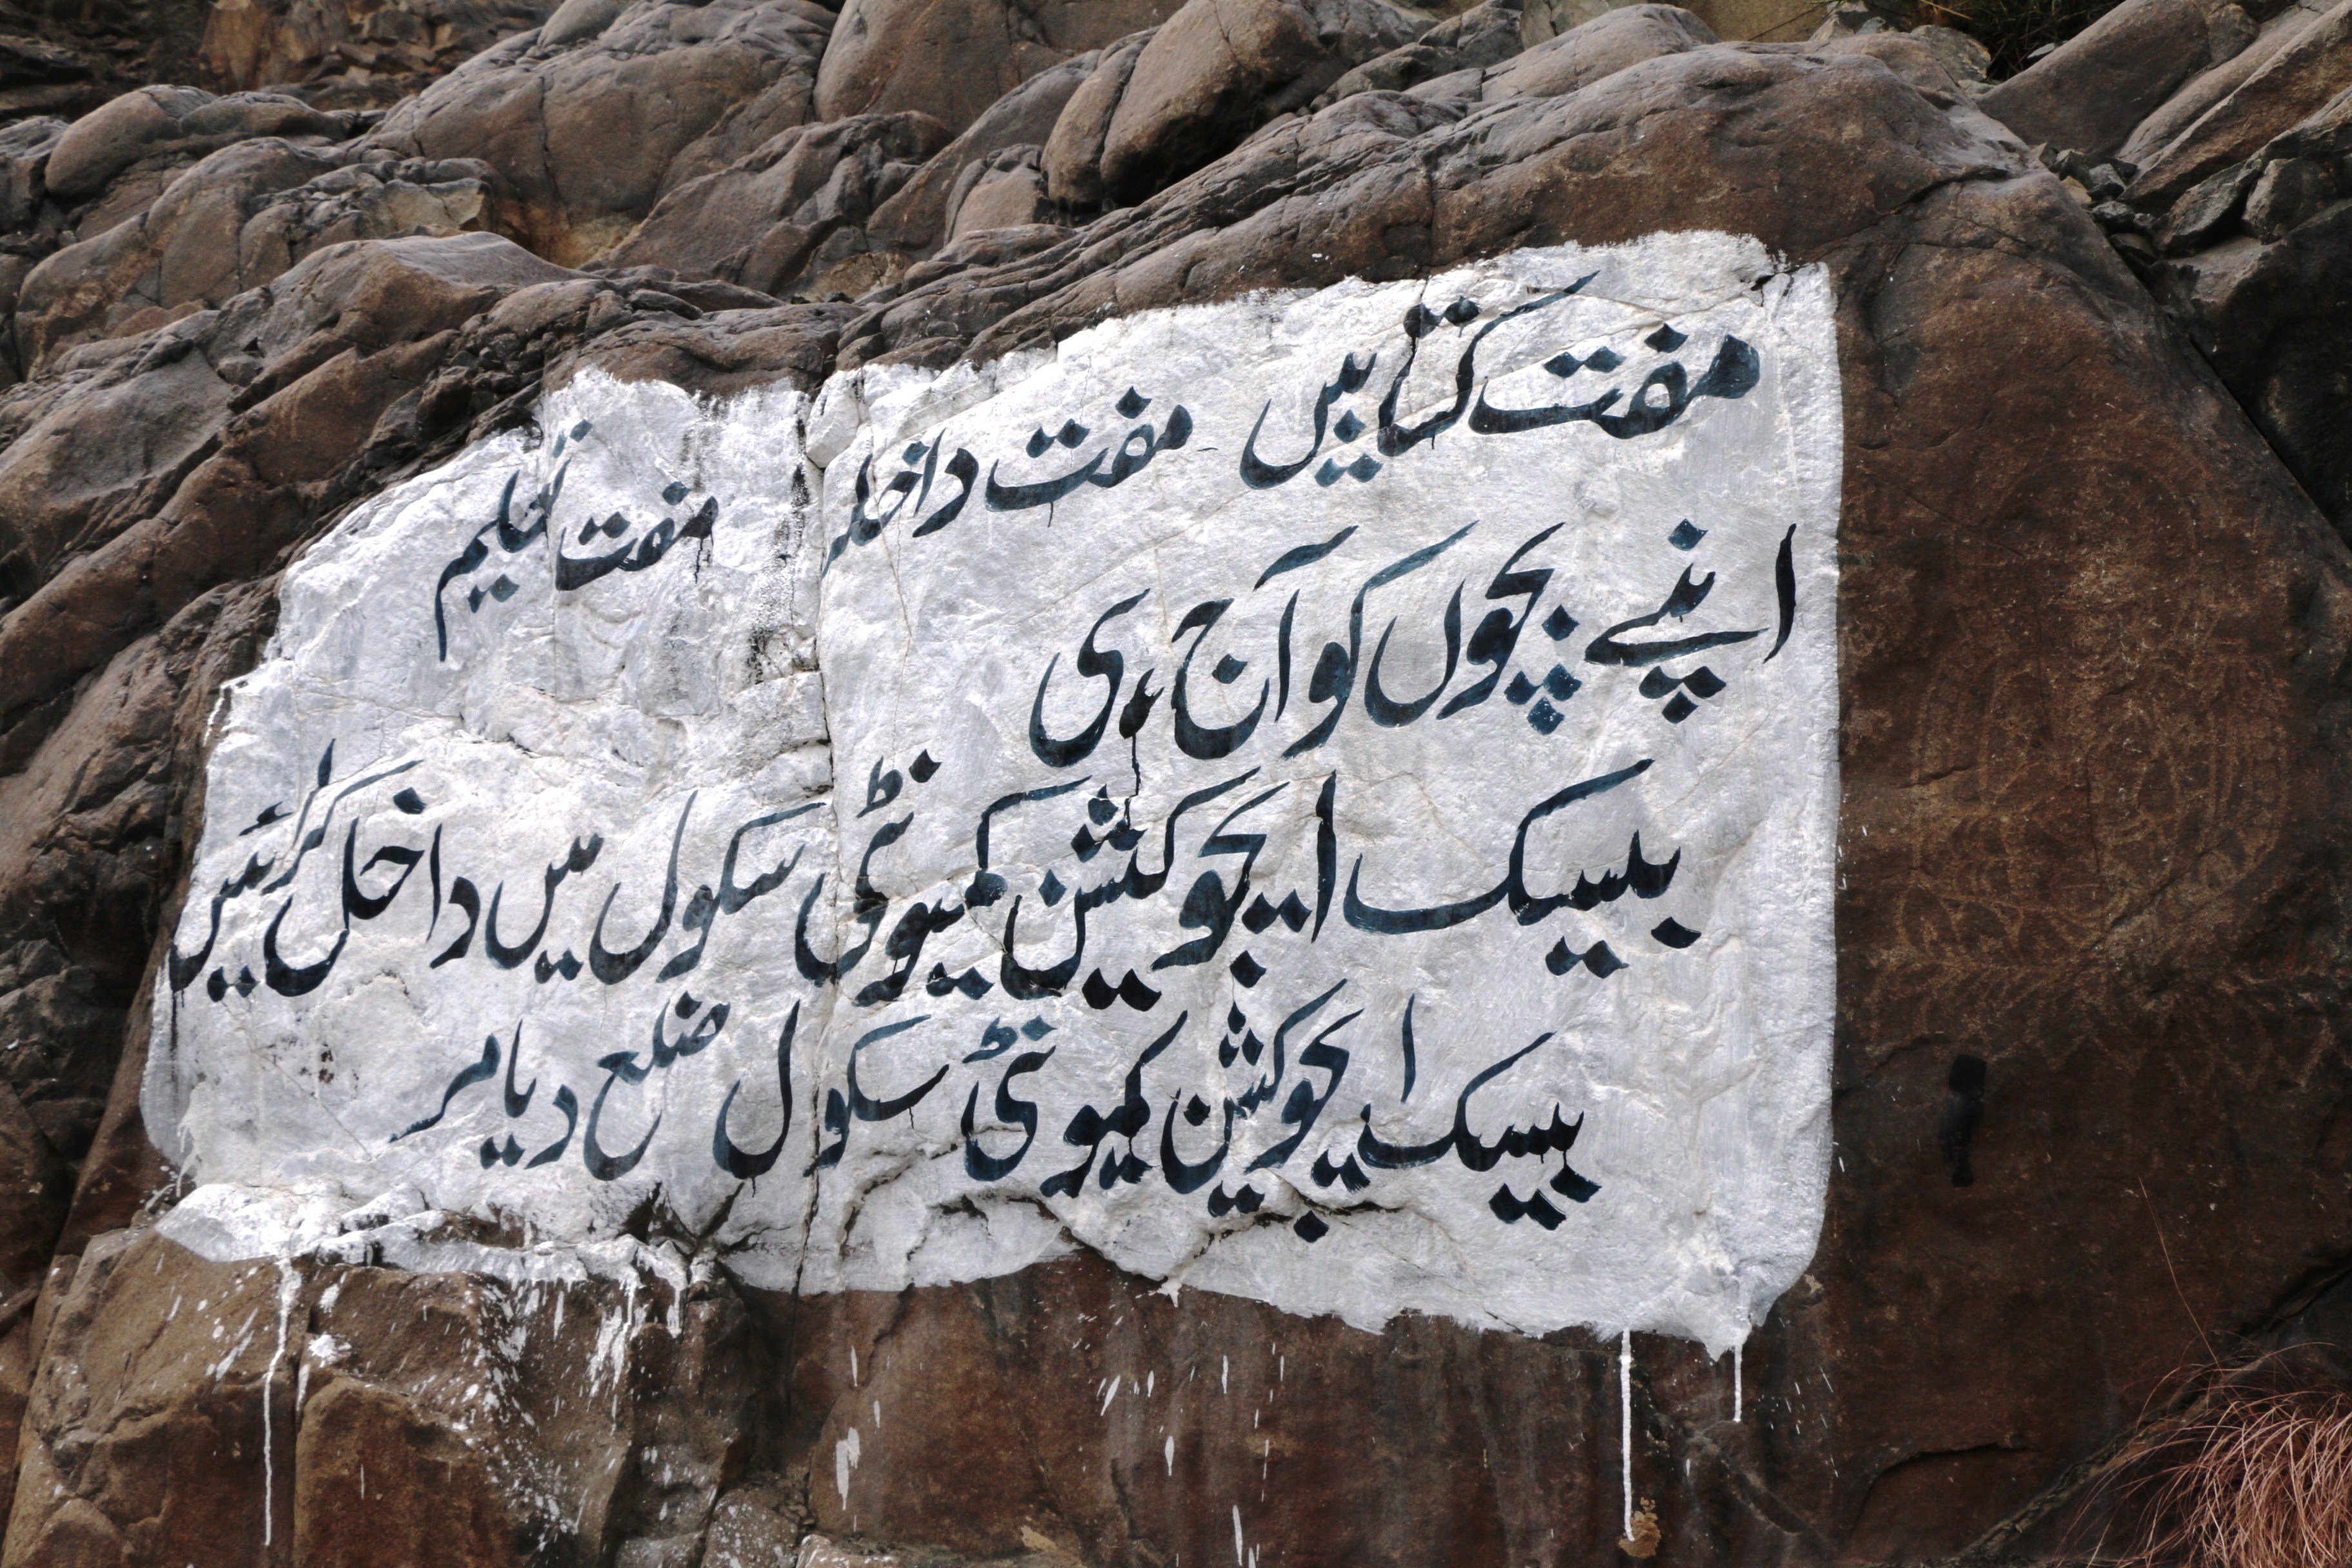 مفت کتابیں مفت داخلہ مفت تعلیم
اپنے بچوں کو آج ہی
بیسیک ایجوکیشن کمیونٹی سکول میں داخل کرائیں
بیسیک ایجوکیشن کمیونٹی سکول ضلع دیامر